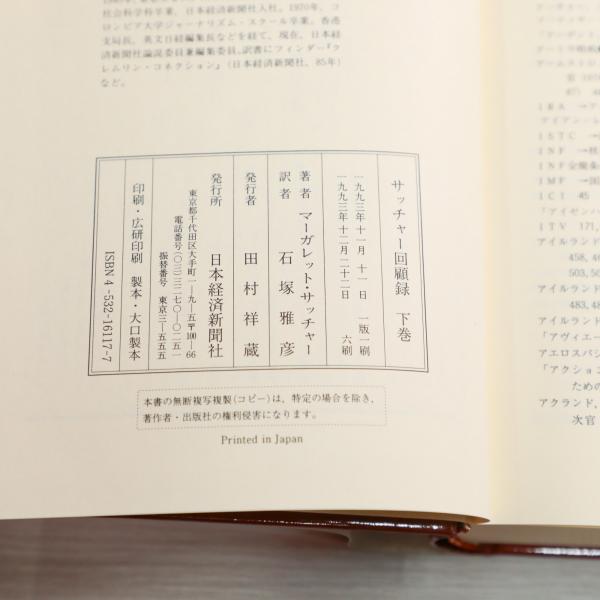 社会科学科卒業、日本経済新聞社入社。1970年、コ
ロンビア大学ジャーナリズム・スクール卒業。香港
支局長、英文日経編集長などを経て、現在、日本経
済新聞社論説委員兼編集委員、訳書にフィンダー『ク
レムリン・コネクション』(日本経済新聞社、85年)
など。
サッチャー回顧録 下巻
一九九三年十一月十一日 一版一刷
一九九三年十二月二十二日 六刷
著者 マーガレット・サッチャー
訳者 石塚雅彦
発行者 田村祥蔵
発行所 日本経済新聞社
東京都千代田区大手町一―九―五 〒100―66
電話番号〇三(三二七〇)〇二五一
振替番号 東京三―五五五
印刷・広研印刷 製本・大口製本
ISBN4-532-16117-7
本書の無断複写複製(コピー)は、特定の場合を除き、
著作者・出版社の権利侵害になります。
Printed in Japan
IRA→ア
アイアン・レ
ISTC→
INF→核
INF全廃条
IMF→国
ICI 45
「アイゼンハ
ITV 171,
アイルランド
458, 46
503, 50
アイルランド
483, 48
アイルランド
「アヴィエー
アエロスパシ
「アクション
ための
アクランド,
次官